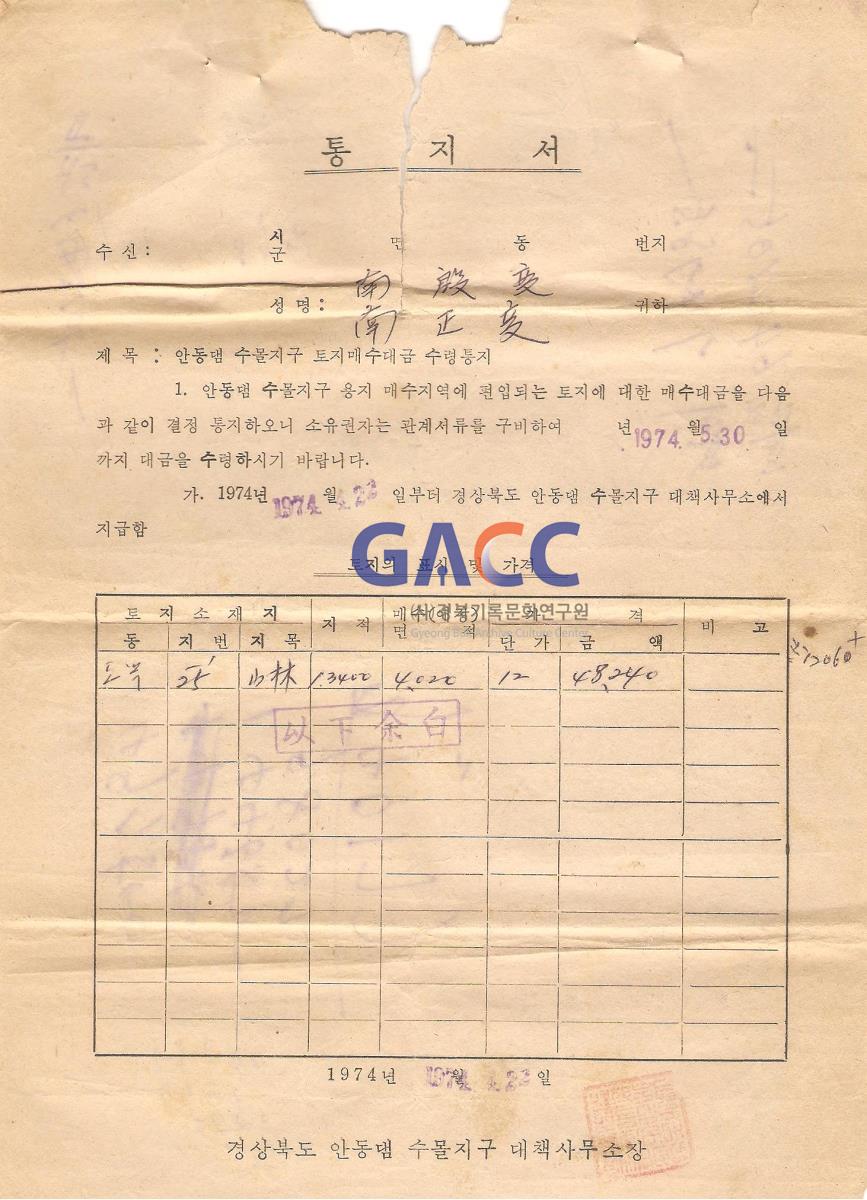 통 지 서
수 신 : 시 군 면 동 번지
南 殷 變
성 명 : 귀하
南 正 變
제 목 : 안동댐 수몰지구 토지매수대금 수령통지
1. 안동댐 수몰지구 용지 매수지역에 편입되는 토지에 대한 매수대금을 다음
과 같이 결정 통지하오니 소유권자는 관계서류를 구비하여 년 월 일
1974. 5.30
까지 대금을 수령하시기 바랍니다.
가. 1974년 월 일부터 경상북도 안동댐 수몰지구 대책사무소에서
1974. 4.22
지급함
GACC
토지의 표시 및 가격
(사)경북기록문화연구원
Gyeong Buk Archive Culture Center
토 지 소 재 지 지 적 매수(예정) 면 적 가 격 비 고
동 지 번 지 목 단 가 금 액
25 山林 1.3400 4,020 12 48,240
12060
以下余白
1974년 월 일
1974. 4.22
경상북도 안동댐 수몰지구 대책사무소장